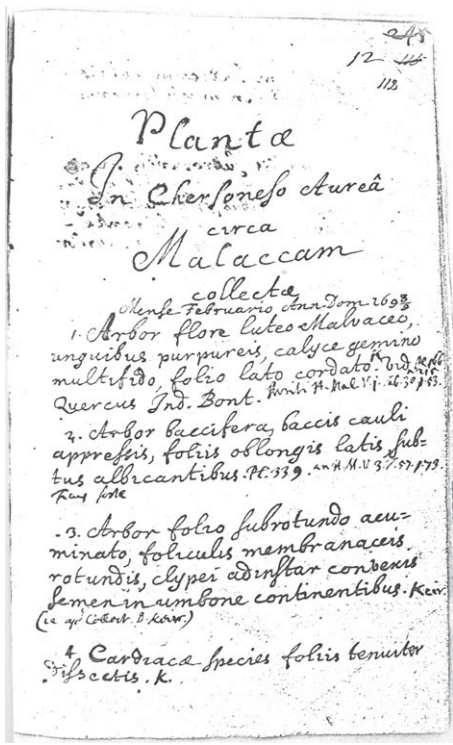 248
12 116
112
Plantæ
In Chersoneso Aureâ
circa
Malaccam
collectæ
Mense Februario, Ann Dom 169 8/9
1. Arbor flore luteo Malvaceo,
unguibus purpureis, calyce gemino
multifido, folio lato cordato. vid
Quercus Ind. Bont. H. Mal. V. 1. 30 p. 53.
2. Arbor baccifera, baccis cauli
appressis, foliis oblongis latis sub=
tus albicantibus. Pl. 339. an H. M. V 3. 57. p. 73.
Ficus forte
3. Arbor folio subrotundo acu=
minato, foliculis membranaceis
rotundis, clypei adinstar convexis
semen in umbone continentibus. Keir.
Collect. D. Keir.)
4 Cardiacæ species foliis tenuiter
dissectis. K.